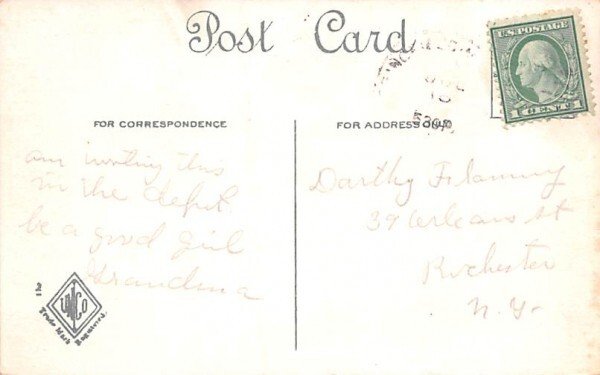 Post Card
U.S. POSTAGE
1 CENT 1
FOR CORRESPONDENCE
FOR ADDRESS ONLY
am writing this
in the depot
be a good girl
Grandma
Dorthy
39 Orleans st
Rochester
N.Y.
The
Trade Mark
Registered.